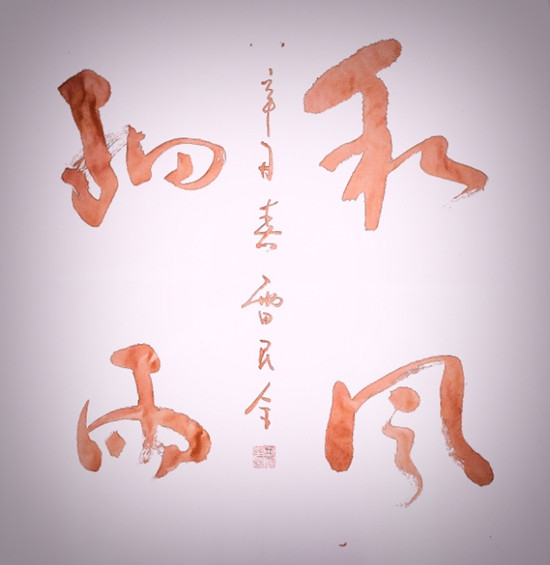 和风
细雨
辛丑春雷民全